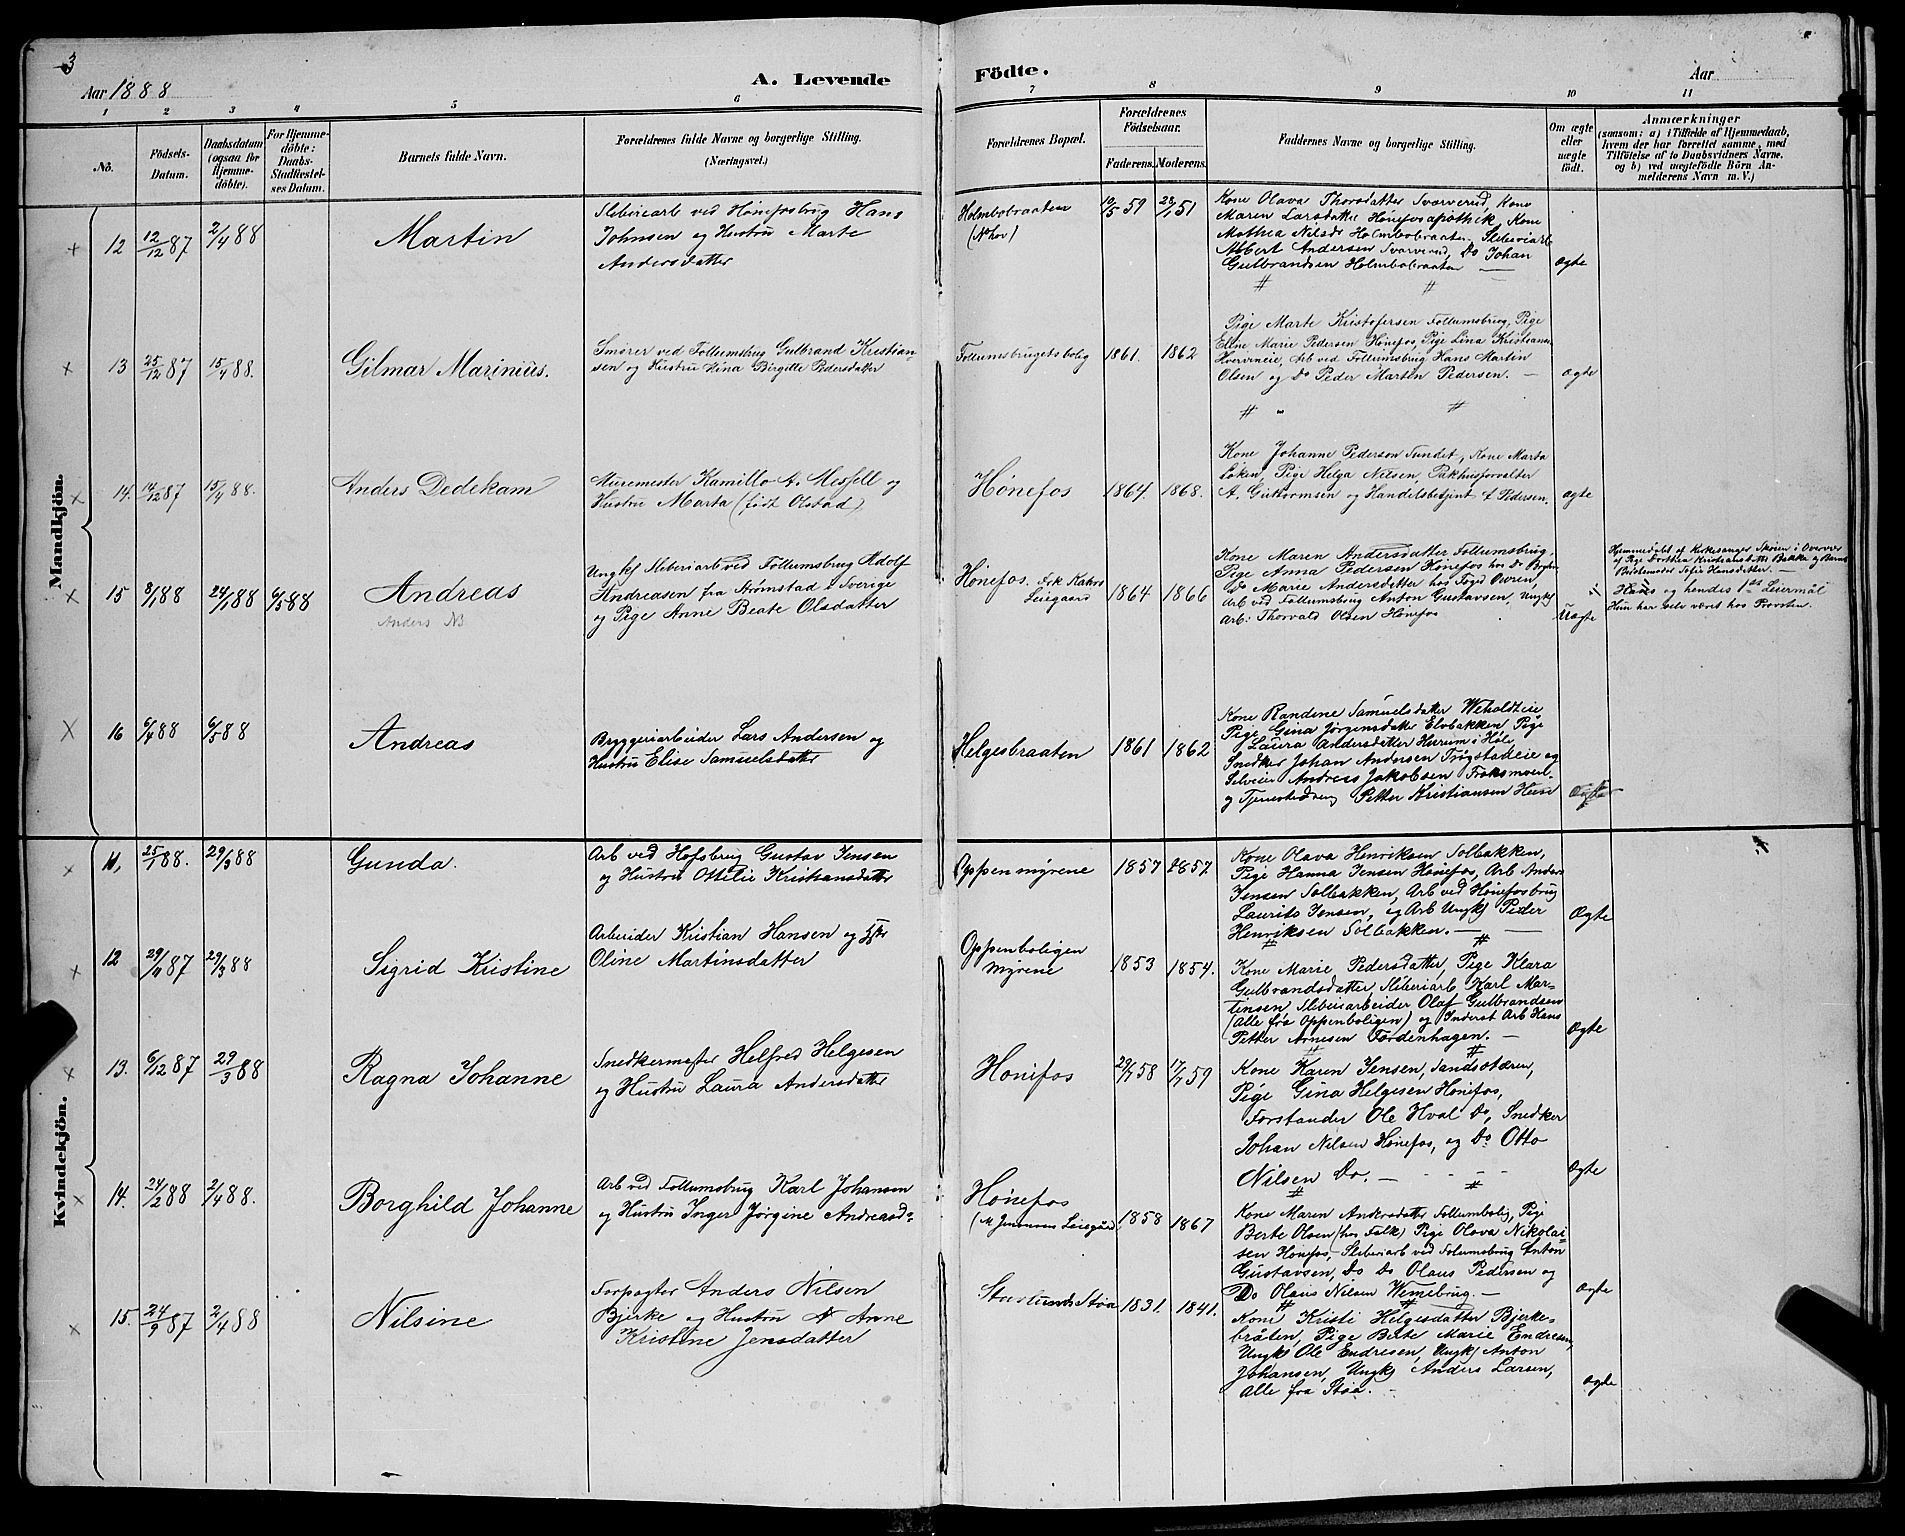 3
Aar 1888
A. Levende
Födte.
Aar
1 2 3 4 5 6 7 8 9 10 11
No.
Födsels-
Datum.
Daabsdatum
(ogsaa for
Hjemme-
döbte).
For Hjemme-
döbte:
Daabs-
Stadfæstel-
ses Datum.
Barnets fulde Navn.
Forældrenes fulde Navne og borgerlige Stilling.
(Næringsvei.)
Forældrenes Bopæl.
Forældrenes
Födselsaar.
Faderens. Moderens.
Faddernes Navne og borgerlige Stilling.
Om ægte
eller
uægte
födt.
Anmærkninger
(saasom: a) i Tilfælde af Hjemmedaab,
hvem der har forrettet samme, med
Tilföielse af to Daabsvidners Navne,
og b) ved uægtefödte Börn An-
melderens Navn m. V.)
Mandkjön.
12 12/12 87 2/4 88
Martin
Sliberiarb ved Hönefosbrug Hans
Johnsen og Hustru Marte
Andersdatter
Holmbobraaten
10/5 59 28/1 51
Kone Olava Thorsdatter Svarverud, Kone
Maren Larsdatter Hönefos apothek, Kone
Mathea Nilsdr Holmbobraaten, Sliberiarb
Albert Andersen Svarverud, Do Johan
Gulbrandsen Holmbobraaten
Ægte
13 25/12 87 15/4 88.
Gilmar Marinius.
Smører ved Follumsbrug Gulbrand Kristian
sen og Hustru Lina Birgitte Pedersdatter
Follumsbrugets bolig
1861. 1862
Pige Marte Kristofersen Follumsbrug, Pige
Elne Marie Pedersen Hönefos Pige Lina Kristiansen
Hvervneie, Arb ved Follumsbrug Hans Martin
Olsen og Do Peder Martin Pedersen.
Ægte
14. 14/12 87 15/4 88.
Anders Dedekam
Muremester Kamillo A. Mesfell og
Hustru Marta (født Olstad)
Hönefos
1864. 1868.
Kone Johanne Pedersen Sundet, Kone Marta
Løken, Pige Helga Nilsen, Pakhusforvalter
A. Guttormsen og Handelsbetjent A Pedersen.
ægte
15 8/1 88 24/1 88 6/5 88
Andreas
Anders NB
Ungkf Sliberiarb ved Follumsbrug Adolf
Andreasen fra Strømstad i Sverige
og Pige Anne Beate Olsdatter
Hönefos.
Leiegaard
1864 1866
Kone Maren Andersdatter Follumsbrug,
Pige Anna Pedersen Hönefos
Do Marie Andersdatter hos Foged Owren,
Arb ved Follumsbrug Anton Gustavsen, Ungkf
Arb: Thorvald Olsen Hönefos
Uægte
Hjemmedøbt af Kirkesanger Skøien i Overvær
af Pige Dorthea Kristiansdatter Bakke og Barnets
Bestemoder Sofie Hansdatter.
Hans og hendes 1ste Leiermål
Hun har selv været hos Provsten.
16 6/4 88 6/5 88
Andreas
Bryggeriarbeider Lars Andersen og
Hustru Elise Samuelsdatter
Helgesbraaten
1861 1862
Kone Randine Samuelsdatter Weholdteie
Pige Gina Jörgensdatter Elvbakken Pige
Laura Andersdatter Hurum i Hole
Snedker Johan Andersen Trøgstadeie og
Selveier Andreas Jakobsen Froksmoen
og Tjenestedreng Petter Kristiansen Heiei
Ægte
Kvindekjön.
11, 25/1 88. 29/3 88
Gunda.
Arb ved Hofsbrug Gustav Jensen
og Hustru Ottelie Kristiansdatter
Oppenmyrene
1857 1857.
Kone Olava Henriksen Solbakken,
Pige Hanna Jensen Hönefos, Arb Anders
Jensen Solbakken, Arb ved Hönefosbrug
Laurits Jensen, og Arb Ungkf Peder
Henriksen Solbakken.
Ægte
12 29/11 87 29/3 88
Sigrid Kristine
Arbeider Kristian Hansen og Hstr
Oline Martinsdatter
Oppenboligen
myrene
1853 1854.
Kone Marie Pedersdatter, Pige Klara
Gulbrandsdatter, Sliberiarb Karl Mar-
tinsen, Sliberiarbeider Olaf Gulbrandsen
(Alle fra Oppenboligen) og Inderst Arb Hans
Petter Arnesen Fordenhagen.
Ægte
13. 6/12 87 29/3 88
Ragna Johanne
Snedkermester Helfred Helgesen
og Hustru Laura Andersdatter
Hönefos
29/7 58 17/7 59
Kone Karen Jensen, Sandsætæren,
Pige Gina Helgesen Hönefos,
Forstander Ole Hval Do, Snedker
Johan Nilsen Hönefos, og Do Otto
Nilsen Do.
Ægte
14. 24/2 88 2/4 88.
Borghild Johanne
Arb ved Follumsbrug Karl Johansen
og Hustru Inger Jørgine Andreasdr
Hönefos
1858 1867
Kone Maren Andersdatter Follumbolig, Pige
Berte Olsen (hos Falk) Pige Olava Nikolai-
sen Hönefos, Sliberiarb ved Follumsbrug Anton
Gustavsen, Do Do Olaus Pedersen og
Do Olaus Nilsen Wemebrug.
Ægte
15. 24/9 87 2/4 88
Nilsine
Forpagter Anders Nilsen
Bjerke og Hustru N Anne
Kristine Jensdatter
Støa
1831. 1841.
Kone Kristi Helgesdatter Bjerke-
bråten, Pige Berte Marie Endresen,
Ungkf Ole Endresen, Ungkf Anton
Johansen, Ungkf Anders Larsen,
Alle fra Støa.
ægte